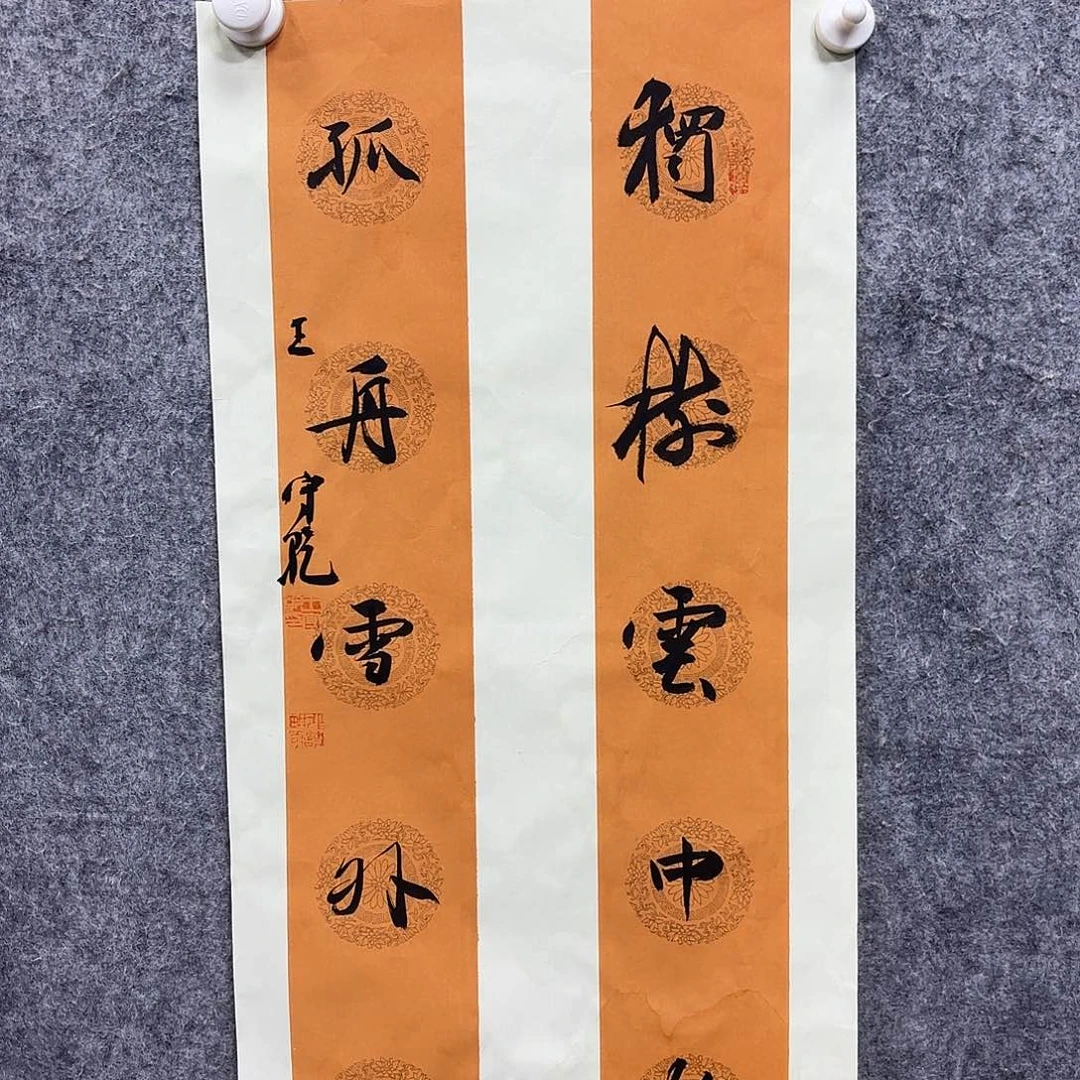 獨樹雲中
孤舟雪外
王守乾